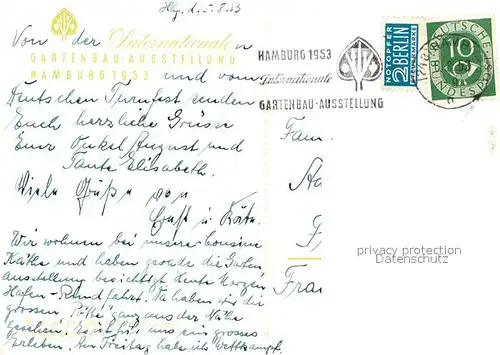 Hbg. d. 5.8.53
Von der Internationalen
GARTENBAU-AUSSTELLUNG
HAMBURG 1953
und vom
Deutschen Turnfest senden
Euch herzliche Grüsse
Euer Onkel August und
Tante Elisabeth.
Viele Grüße von
Ernst u. Käte.
Wir wohnen bei unserer Cousine
Käthe und haben gerade die Garten
ausstellung besichtigt. Heute Morgen
Hafen-Rundfahrt. Da haben wir die
grossen Pötte ganz aus der Nähe
gesehen. Es ist für uns ein grosses
Erleben. Am Freitag habe ich Wettkampf
HAMBURG 1953
Internationale
GARTENBAU-AUSSTELLUNG
NOTOPFER
2 BERLIN
STEUERMARKE
DEUTSCHE
10
BUNDESPOST
Fam.
Fra
privacy protection
Datenschutz